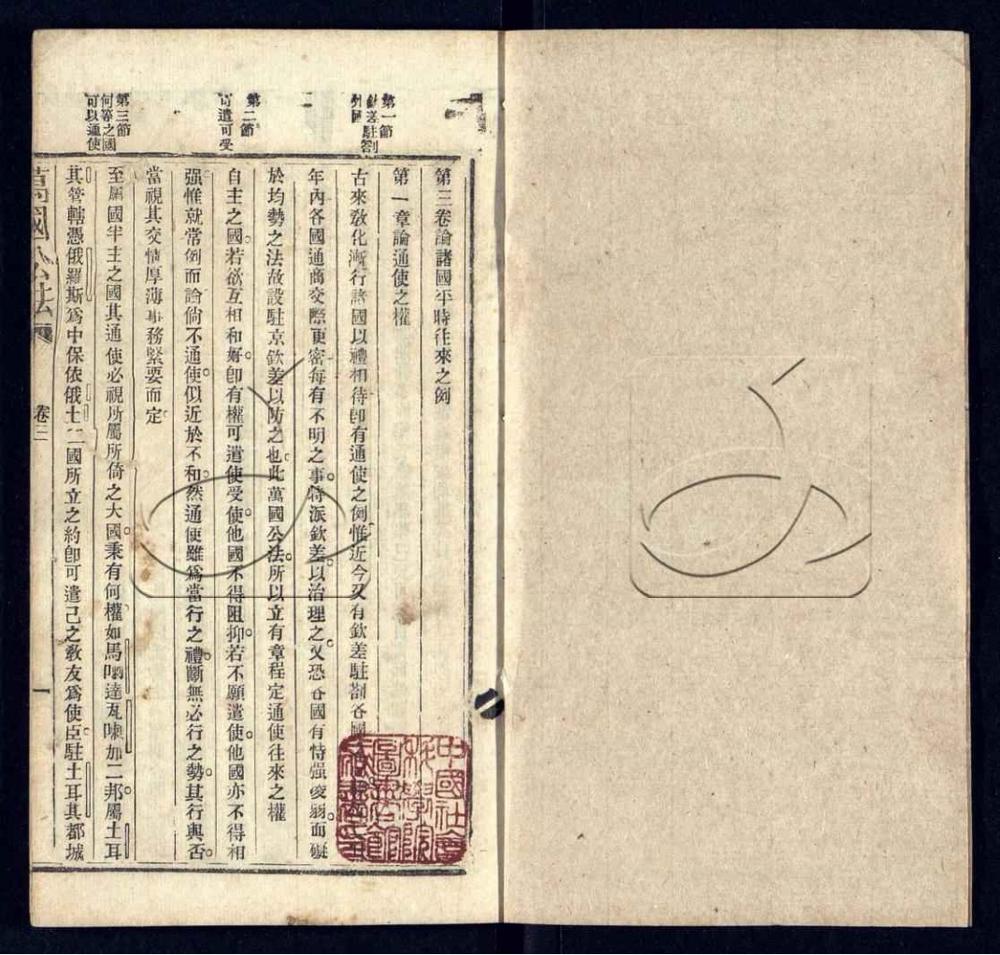 第三卷論諸國平時往來之例
第一章論通使之權
第一節
欽差駐劄
外國
古來敎化漸行諸國以禮相待卽有通使之例惟近今又有欽差駐劄各國
年內各國通商交際更密每有不明之事特派欽差以治理之又恐各國有恃强凌弱而礙
於均勢之法故設駐京欽差以防之也此萬國公法所以立有章程定通使往來之權
第二節
可遣可受
自主之國若欲互相和好卽有權可遣使受使他國不得阻抑若不願遣使他國亦不得相
强惟就常例而論倘不通使似近於不和然通使雖爲當行之禮斷無必行之勢其行與否
當視其交情厚薄事務緊要而定
第三節
何等之國
可以通使
至屬國半主之國其通使必視所屬所倚之大國秉有何權如馬喇達瓦喇加二邦屬土耳
其管轄憑俄羅斯爲中保依俄土二國所立之約卽可遣己之敎友爲使臣駐土耳其都城
萬國公法
卷三
一
中國社會
科學院
圖書館